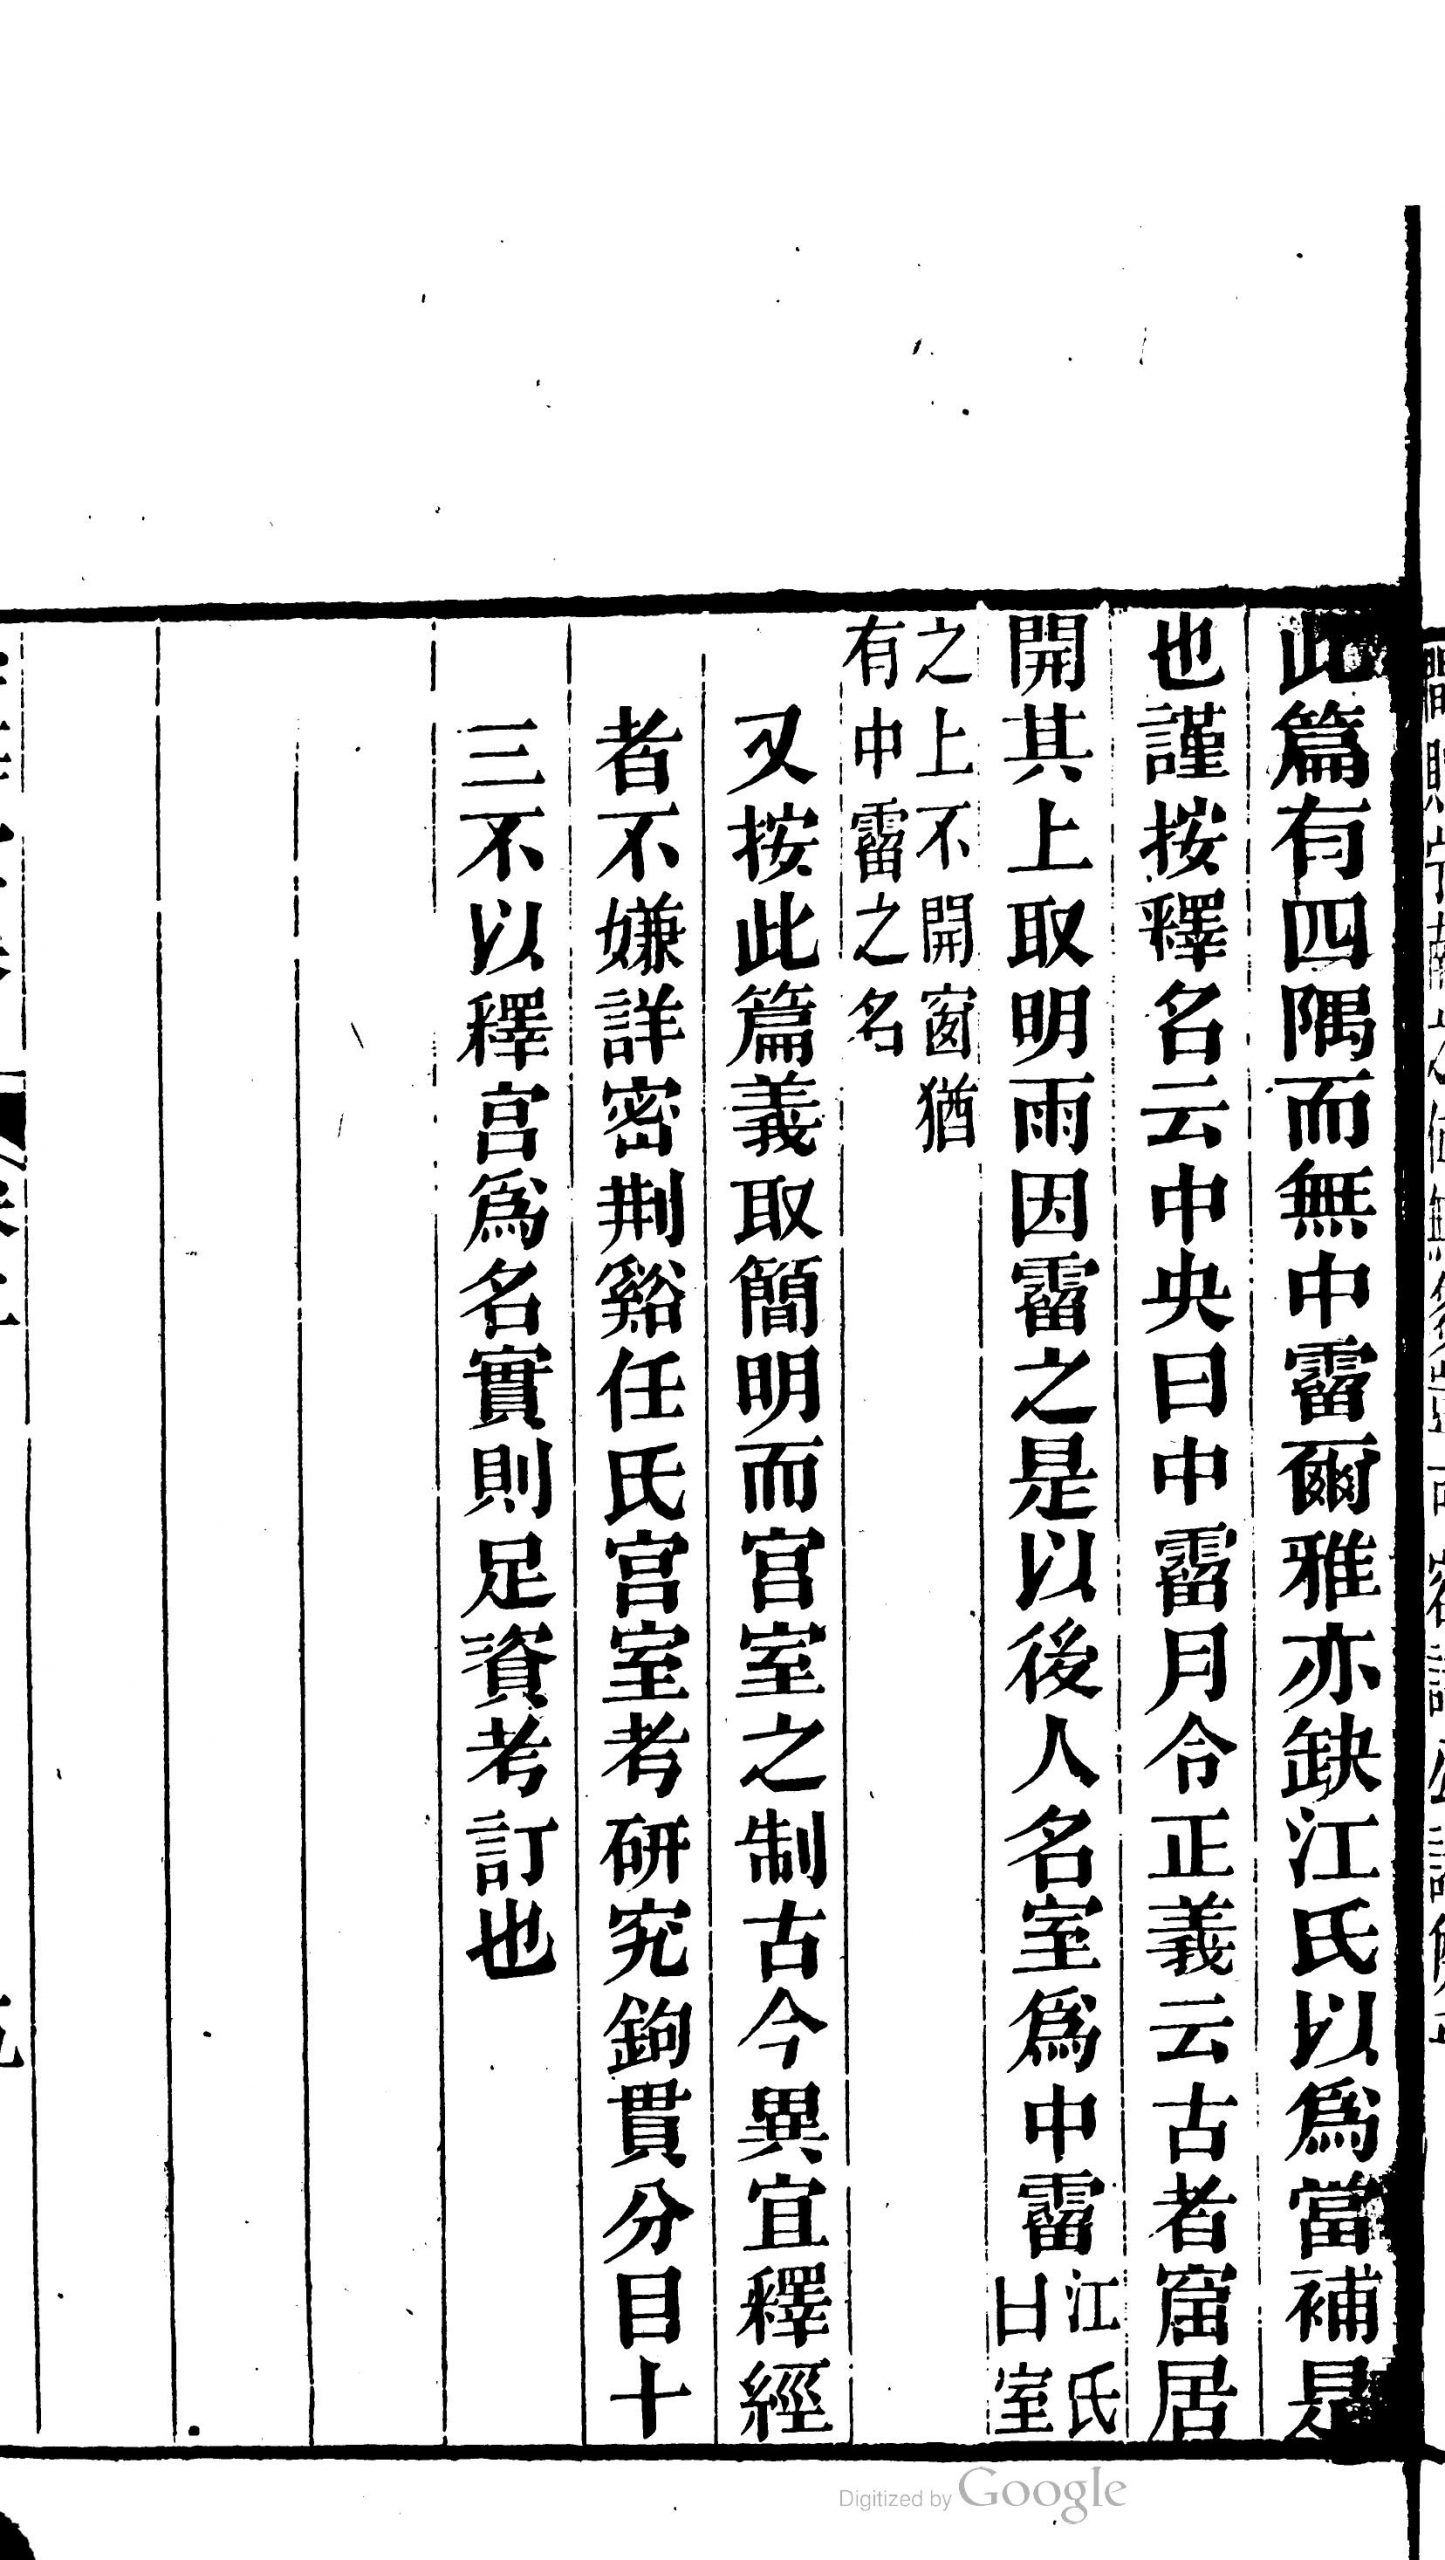 此篇有四隅而無中霤爾雅亦缺江氏以為當補是
也謹按釋名云中央曰中霤月令正義云古者窟居
開其上取明雨因霤之是以後人名室為中霤江氏曰室
之上不開窗猶有中霤之名
又按此篇義取簡明而宮室之制古今異宜釋經
者不嫌詳密荆谿任氏宮室考研究鉤貫分目十
三不以釋宮為名實則足資考訂也
Digitized by Google